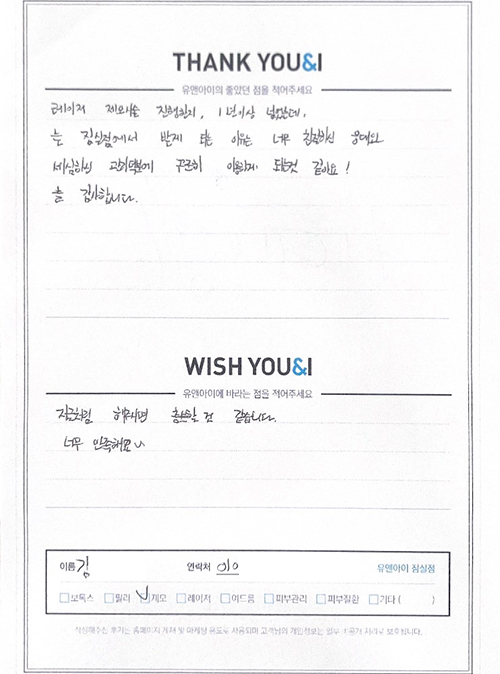 THANK YOU&I
유앤아이의 좋았던 점을 적어주세요
레이저 제모시술 진행한지, 1년이상 넘었는데,
늘 잠실점에서 받게 되는 이유는 너무 친절하신 응대와
세심하신 관리덕분에 꾸준히 이용하게 되는것 같아요!
늘 감사합니다.
WISH YOU&I
유앤아이에 바라는 점을 적어주세요
지금처럼 해주시면 충분할 것 같습니다.
너무 만족해요
이름 김 연락처 010 유앤아이 잠실점
보톡스 필러 제모 레이저 여드름 피부관리 피부질환 기타 ( )
작성해주신 후기는 홈페이지 게재 및 마케팅 용도로 사용되며 고객님의 개인정보는 일부 비공개 처리로 보호됩니다.